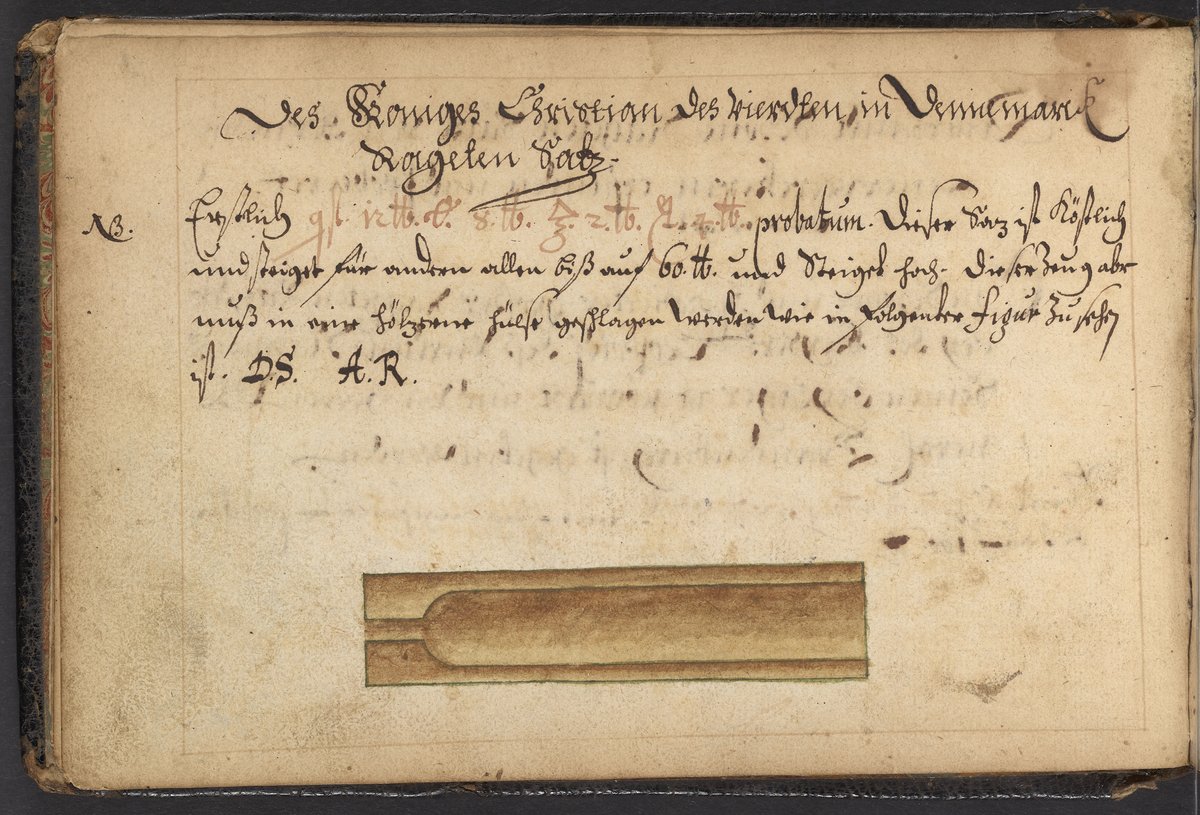 Des Königes Christian des vierdten in Dennemarck
Rageten Satz.
NB. Erstlich 12 ℔. 8. ℔. 2. ℔. ℔. probatum. Dieser Saz ist Köstlich
und steiget für andern allen biß auf 60. ℔. und Steiget hoch. Dieser Zeug abr
muß in eine höltzerne hülse geschlagen werden wie in folgender figur zu sehen
ist. D.S. A.R.